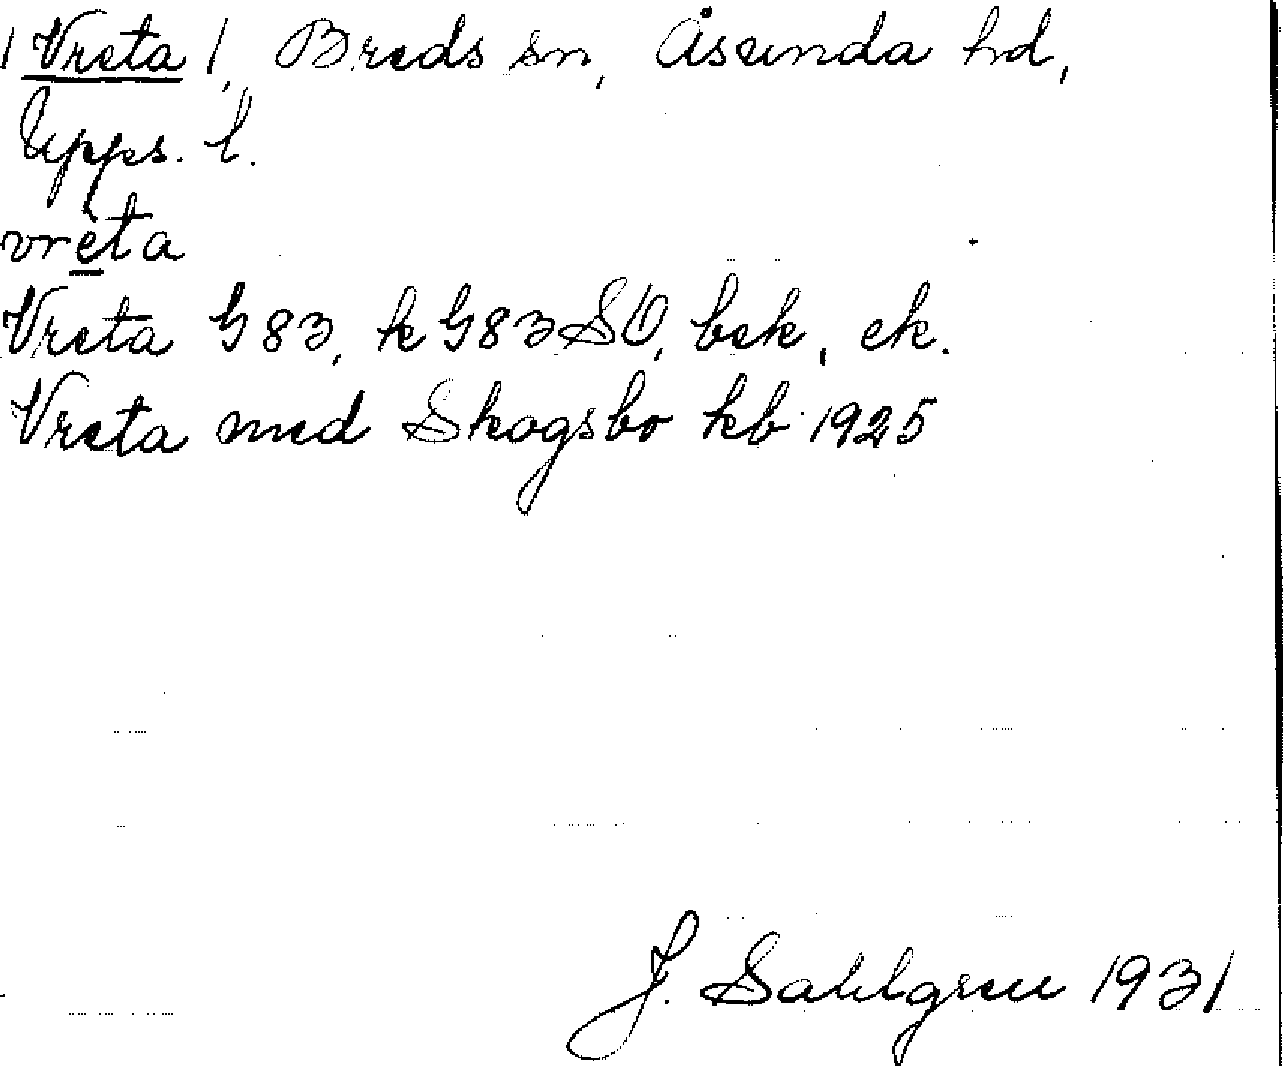 /Vreta/, Breds sn, Åsunda hd,
Upps. l.
vrèta
Vreta G 83, k G 83 SO, bek, ek.
Vreta med Skogsbo kb 1925
J. Sahlgren 1931